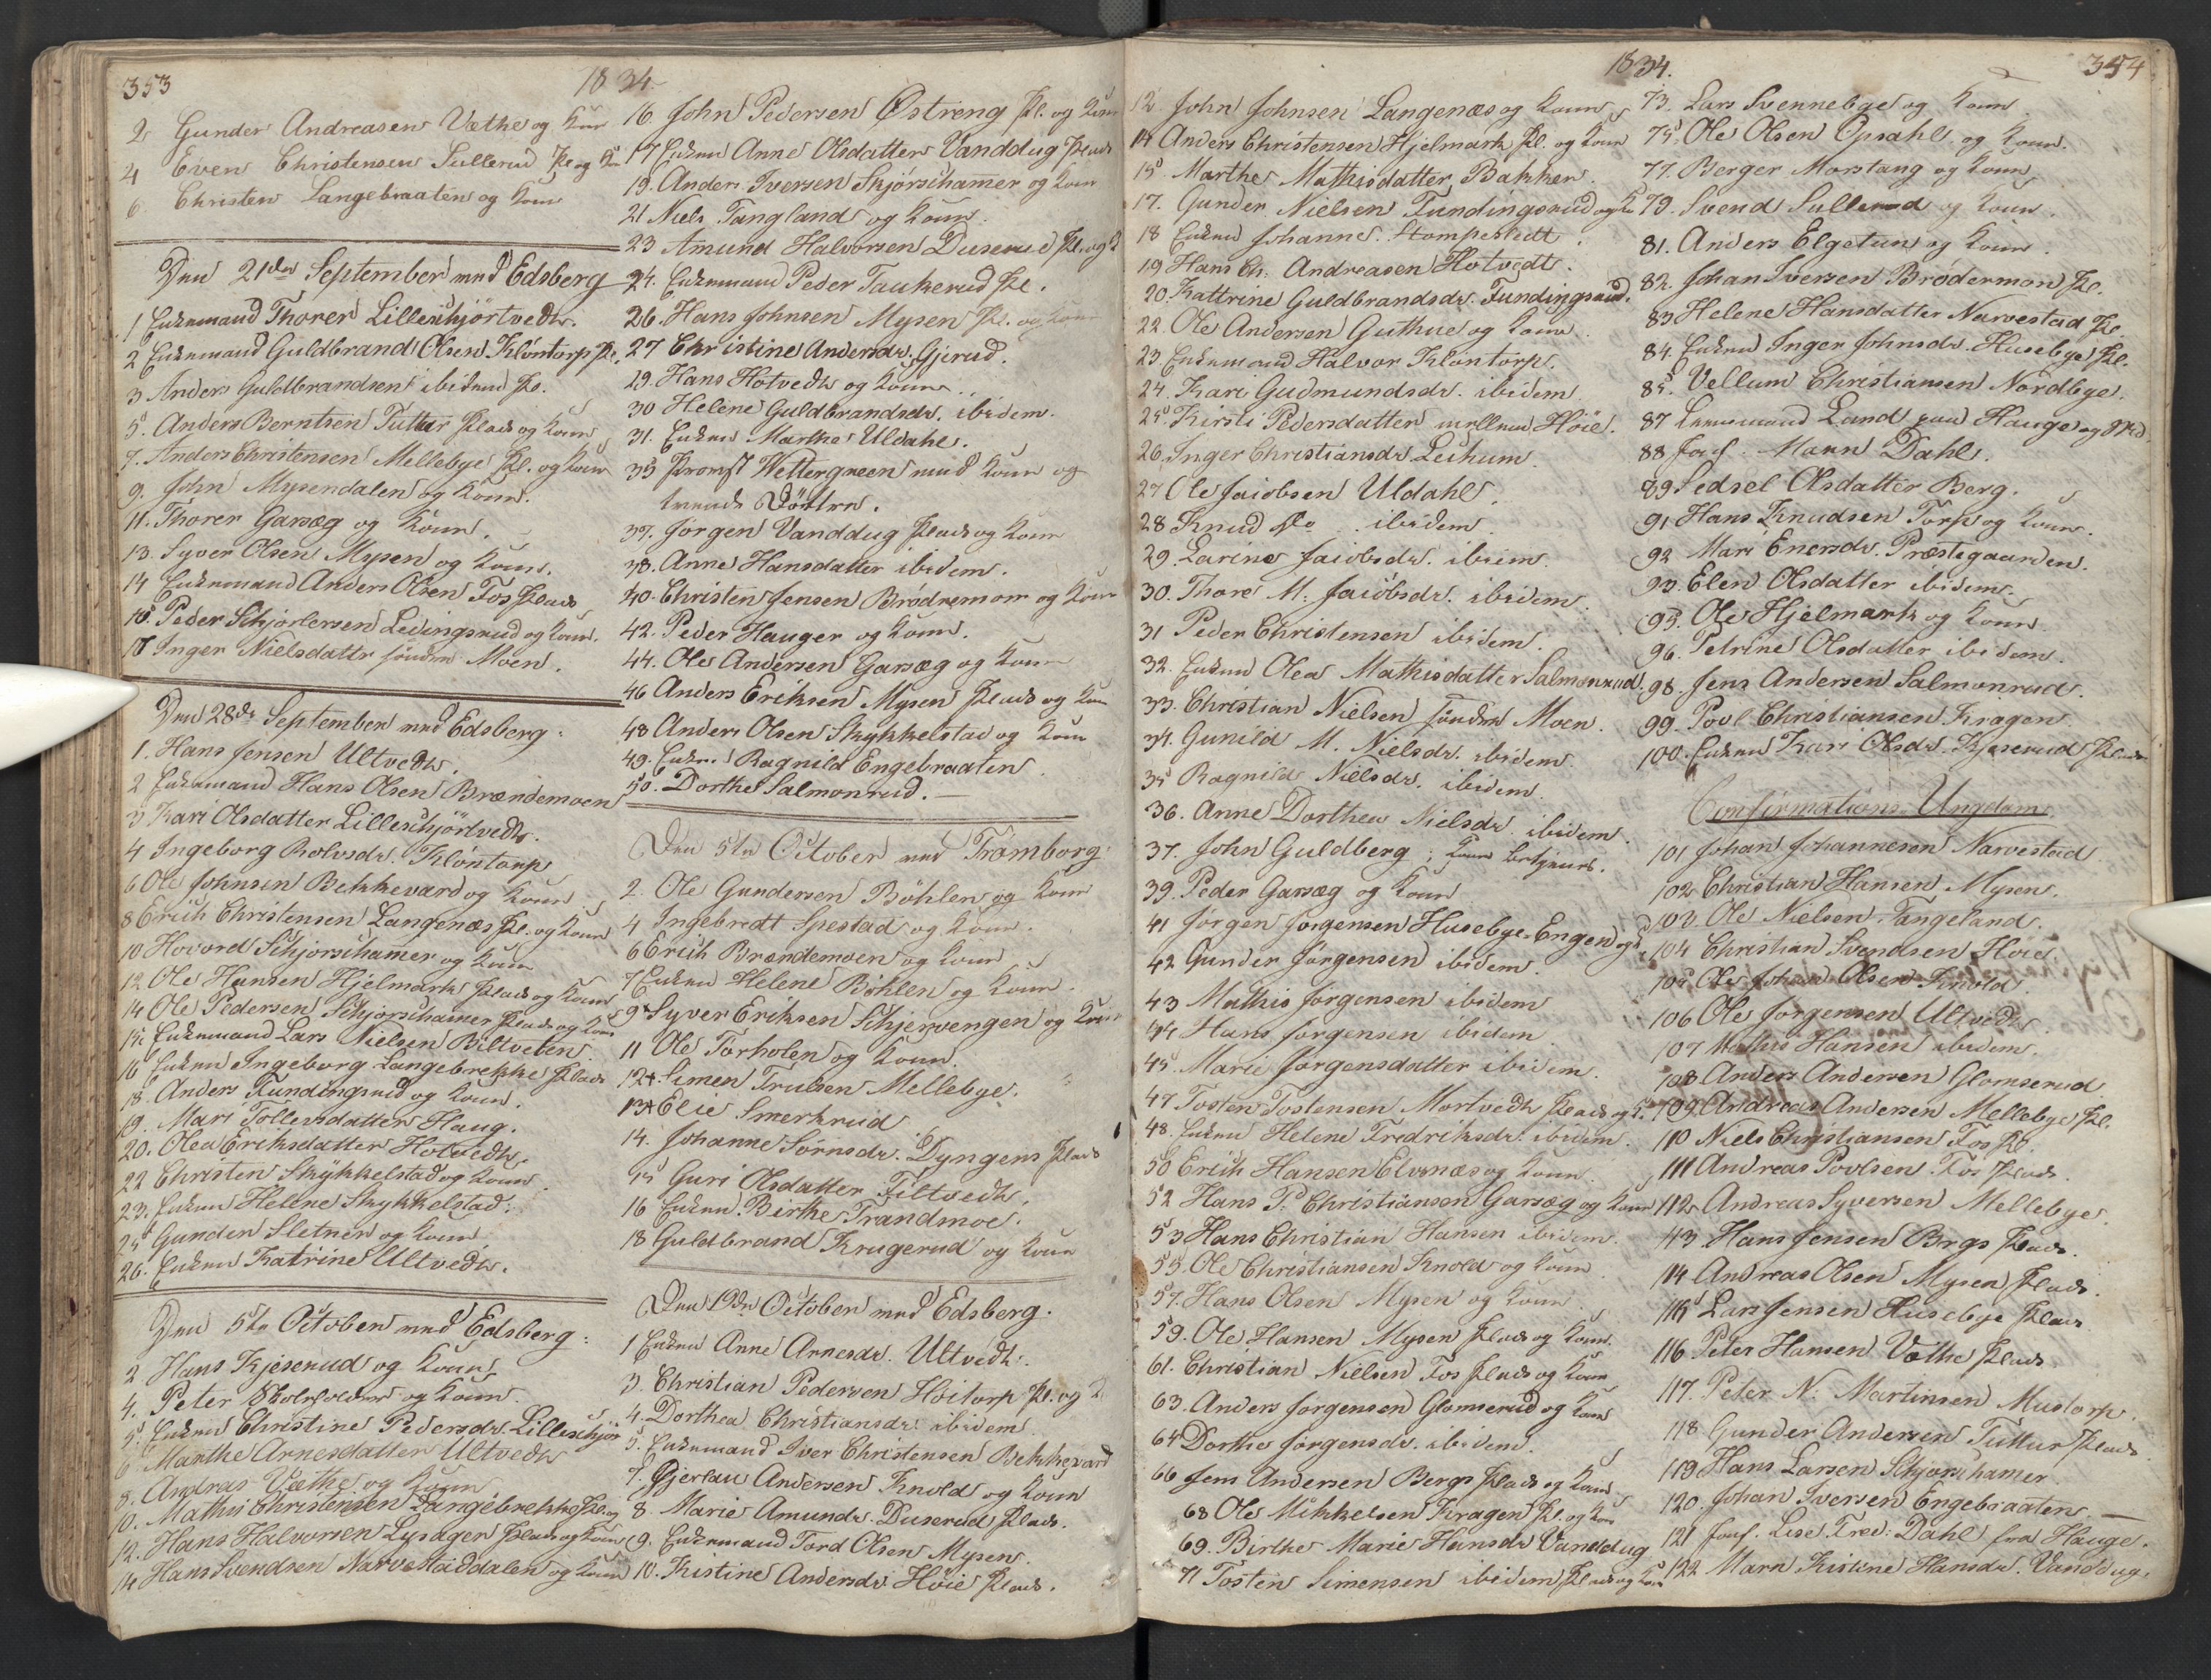 353
1834
2 Gunder Andreasen Væthe og Kone
4 Even Christensen Sullerud Pl. og K
6. Christen Langebraaten og Kone
Den 21de September ved Edsberg
1 Enkemand Thorer Lilleskjørtvedt.
2 Enkemand Guldbrand Olsen Kløntorp Pl.
3 Anders Guldbrandsen ibidem Pl.
5. Anders Berntsen Tuttur Plads og Kone
7. Anders Christensen Mellebye Pl. og Kone
9. John Mysendalen og Kone.
11. Thorer Garsæg og Kone.
13. Syver Olsen Mysen og Kone.
14 Enkemand Anders Olsen Fos Plads
16. Peder Schjørlersen Ledingsrud og Kone.
17 Inger Nielsdattr søndre Moen.
Den 28de September ved Edsberg:
1. Hans Jensen Ultvedt.
2 Enkemand Hans Olsen Brændemoen
3 Kari Olsdatter Lilleschjørtvedt.
4 Ingeborg Rolvsdr. Kløntorp
6 Ole Johnsen Bekkevard og Kone
8 Erich Christensen Langenæs Pl. og Kone
10 Hovord Schjorschamer og Kone
12 Ole Hansen Hjelmark Plads og Kone
14 Ole Pedersen Schjorschamer Plads og Kone
15 Enkemand Lars Nielsen Biltveten.
16 Enken Ingeborg Langebrekke Plads
18. Anders Fundingsrud og Kone.
19. Mari Tollevsdatter Haug.
20. Olea Eriksdatter Hotvedt.
22 Christen Skykkelstad og Kone.
23. Enken Helene Skykkelstad.
25 Gunder Sletner og Kone
26. Enken Katrine Ultvedt.
Den 5te October ved Edsberg:
2 Hans Kjeserud og Kone
4. Peter Skoleholder og Kone.
5. Enken Christine Pedersdr. Lilleschjør
6 Marthe Arnesdatter Ultvedt
8. Andreas Væthe og Kone
10. Mathis Christensen Langebrekke Pl. og
12. Hans Halvorsen Lysager Plads og Kone
14 Hans Svendsen Narvestaddalen og Kone
16. John Pedersen Østreng Pl. og Kone
17 Enken Anne Olsdatter Vanddug Plads
19. Anders Iversen Skjørschamer og Kone
21 Niels Tangland og Kone.
23 Amund Halvorsen Duserud Pl. og K
24. Enkemand Peder Taukerud Pl.
26. Hans Johnsen Mysen Pl. og Kone
27 Christine Andersdr. Gjerud.
29. Hans Hotvedt og Kone
30 Helene Guldbrandsdr. ibidem.
31. Enken Marthe Uldahl.
35 Provst Wettergreen med Kone og
trende Døttre.
37. Jørgen Vanddug Plads og Kone
38. Anne Hansdatter ibidem.
40. Christen Jensen Brødremoen og Kone
42. Peder Hauger og Kone.
44. Ole Andersen Garsæg og Kone
46 Anders Eriksen Mysen Plads og Kone
48 Anders Olsen Skykkelstad og Kone
49. Enken Ragnild Engebraaten.
50. Dorthe Salmonrud.
Den 5te October ved Trømborg:
2. Ole Gundersen Bøhlen og Kone
4 Ingebredt Spestad og Kone.
6 Erich Brændemoen og Kone
7 Enken Helene Bøhlen og Kone.
9 Syver Eriksen Schjervengen og Kone
11 Ole Torholen og Kone.
12. Simen Trulsen Mellebye.
13 Elie Smerkrud
14. Johanne Sørnsdr. Dyngens Plads
15 Guri Olsdatter Filtvedt.
16 Enken Birthe Trandmoe.
18 Guldbrand Krugerud og Kone
Den 19de October ved Edsberg.
1 Enken Anne Arnesdr. Ultvedt.
3. Christian Pedersen Hoitorp Pl. og K
4. Dorthea Christiansdr. ibidem
5. Enkemand Iver Christensen Bekkevard
7. Gjerlau Andersen Knold og Kone
8 Marie Amundr. Duserud Plads.
9. Enkemand Tord Olsen Mysen.
10. Kistine Andersdr. Høie Plads.
1834.
354
12 John Johnsen Langenæs og Kone
14 Anders Christensen Hjelmark Pl. og Kone
15 Marthe Mathisdatter Bakken.
17. Gunder Nielsen Fundingsrud og K
18 Enken Johanne Stompestedt.
19 Hans Ch. Andreasen Hotvedt.
20. Kattrine Guldbrandsdr. Fundingsrud.
22. Ole Andersen Guthue og Kone
23. Enkemand Halvor Kløntorp.
24. Kari Gudmundsdr. ibidem
25 Kirsti Pedersdatter mellem Høie.
26. Inger Christiansdr. Lekum.
27 Ole Jacobsen Uldahl.
28 Knud do. ibidem
29. Larine Jacobsdr. ibiem.
30. Thore M. Jacobsdr. ibidem
31 Peder Christensen ibidem.
32. Enken Olea Mathisdatter Salmonrud.
33. Christian Nielsen søndre Moen.
34. Gunild M. Nielsdr. ibidem.
35 Ragnild Nielsdr. ibidem.
36. Anne Dorthea Nielsdr. ibidem.
37. John Guldberg,
39. Peder Garsæg og Kone
41 Jørgen Jørgensen Husebye-Engen og K
42 Gunder Jørgensen ibidem.
43 Mathis Jørgensen ibidem
44 Hans Jørgensen ibidem
45 Marie Jørgensdatter ibidem.
47 Tosten Tostensen Mortvedt Plads og K.
48. Enken Helene Fredriksdr. ibidem.
50 Erich Hansen Elvenæs og Kone.
52 Hans P. Christiansen Garsæg og Kone
53 Hans Christian Hansen ibidem.
55. Ole Christiansen Knold og Kone
57. Hans Olsen Mysen og Kone.
59. Ole Hansen Mysen Plads og Kone.
61. Christian Nielsen Fos Plads og Kone
63. Anders Jørgensen Glomserud og Kone
64 Dorthe Jørgensdr. ibidem.
66 Jens Andersen Bergs Plads og Kone
68 Ole Mikkelsen Kragen Pl. og Kone
69. Birthe Marie Hansdr Vanddug
71 Tosten Simensen ibidem Plads og Kone
73. Lars Svennebye og Kone
75 Ole Olsen Opsahl og Kone.
77. Berger Morstang og Kone
79. Svend Sullerud og Kone.
81. Anders Elgetun og Kone.
82. Johan Iversen Brødermon Pl.
83 Helene Hansdatter Narvestad Pl.
84. Enken Inger Johnsdr. Husebye Pl.
85. Vellum Christiansen Nordbye.
87 Lensmand Lund paa Hauge og Md.
88 Jonf. Maren Dahl.
89 Sedsel Olsdatter Berg.
91 Hans Knudsen Torp og Kone.
92 Mari Enersdr. Præstegaarden.
93. Elen Olsdatter ibidem.
95. Ole Hjelmark og Kone
96. Petrine Olsdatter ibidem.
98. Jens Andersen Salmonrud.
99. Povl Christiansen Kragen.
100. Enken Kari Olsdr. Kjeserud Plads
Confirmations Ungdom
101 Johan Johannesen Narvestad
102 Christian Hansen Mysen.
103. Ole Nielsen Tangeland.
104 Christian Svendsen Høie.
105 Ole Johan Olsen Knold.
106 Ole Jørgensen Ultvedt
107 Mathis Hansen ibidem.
108 Anders Andersen Glomserud
109. Andreas Andersen Mellebye Pl.
110 Niels Christiansen Fos Pl.
111 Andreas Povlsen Fos Plads.
112 Andreas Syversen Mellebye.
113 Hans Jensen Brgs Plads.
114 Andreas Olsen Mysen Plads.
115 Lars Jensen Husebye Plads
116 Peter Hansen Væthe Plads
117. Peter N. Martinsen Mustorp.
118 Gunder Andersen Tuttur Plads
119 Hans Larsen Schjorschamer
120. Johan Iversen Engebraaten.
121 Jonf. Lise Fred: Dahl fra Hauge.
122 Marn Kistine Hansdr. Vanddug.